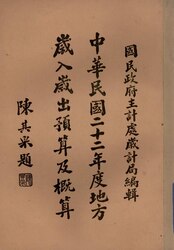 國民政府主計處歲計局編輯
中華民國二十二年度地方
歲入歲出預算及概算
陳其采題